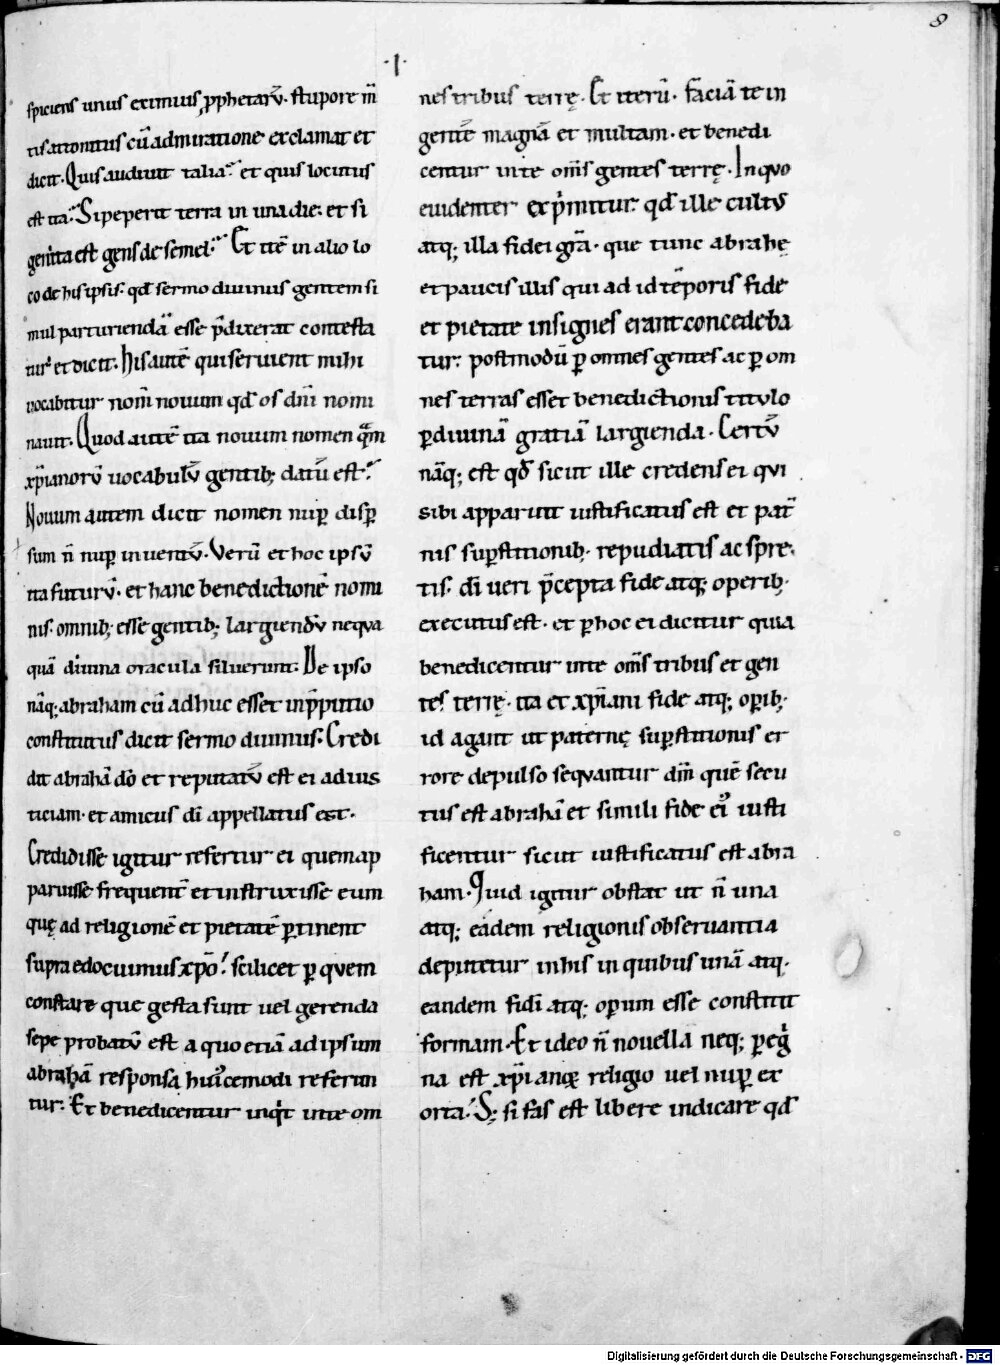 8
·I·
spiciens unus eximius ꝓphetarū. stupore m̅
tis attonitus cū admiratione exclamat et
dicit. Quis audiuit talia? et quis locutus
est ita? Si peperit terra in una die. et si
genita est gens de semel? Et itē in alio lo
co de his ipsis. qd̅ sermo diuinus gentem si
mul parturiendā esse p̄dixerat contesta
tur et dicit. His autē qui seruient mihi
uocabitur nom̅ nouum qd̅ os dn̅i nomi
nauit. Quod autē ita nouum nomen quā
xp̅ianorū uocabulū gentib; datū est?
Nouum autem dicit nomen nup̲ disp̲
sum n̅ nup̲ inuentū. Verū et hoc ipsū
ita futurū. et hanc benedictionē nomi
nis. omnib; esse gentib; largiendū nequa
quā diuina oracula siluerunt. De ipso
nāq; abraham cū adhuc esset in p̄putio
constitutus dicit sermo diuinus. Credi
dit abrahā do̅ et reputatū est ei ad ius
ticiam. et amicus di̅ appellatus est.
Credidisse igitur refertur ei quem ap
paruisse frequent̅ et instruxisse eum
quę ad religionē et pietatē ꝑtinent
supra edocuimus xp̅o. scilicet ꝑ quem
constare que gesta sunt uel gerenda
sepe probatū est a quo etiā ad ipsum
abrahā responsa huiᷤcemodi referun
tur. Et benedicentur inqͥt in te om
nes tribus terrę. Et iterū. faciā te in
gentē magnā et multam. et benedi
centur in te om̅s gentes terrę. In quo
euidenter exp̍mitur. qd̅ ille cultus
atq; illa fidei gr̅a. que tunc abrahę
et paucis illis qui ad id tēporis fide
et pietate insignes erant concedeba
tur. postmodū ꝑ omnes gentes ac ꝑ om
nes terras esset benedictionis titulo
ꝑ diuinā gratiā largienda. Certū
nāq; est qd̅ sicut ille credens ei qui
sibi apparuit iustificatus est et pat̅
nis sup̲stitionib; repudiatis ac spre
tis. di̅ ueri p̄cepta fide atq; operib;
executus est. et ꝑ hoc ei dicitur quia
benedicentur in te om̅s tribus et gen
tes terrę. ita et xp̅iani fide atq; op̲ib;
id agant ut paternę sup̲stitionis er
rore depulso sequantur dm̅ quē secu
tus est abrahā et simili fide eiᷤ iusti
ficentur sicut iustificatus est abra
ham. Quid igitur obstat ut n̅ una
atq; eadem religionis obseruantia
deputetur in his in quibus unā atq;
eandem fidi̅ atq; op̲um esse constitit
formam. Et ideo n̅ nouella neq; ꝑegͥ
na est xp̅ianę religio uel nup̲ ex
orta. S; si fas est libere indicare qd̅
Digitalisierung gefördert durch die Deutsche Forschungsgemeinschaft - DFG